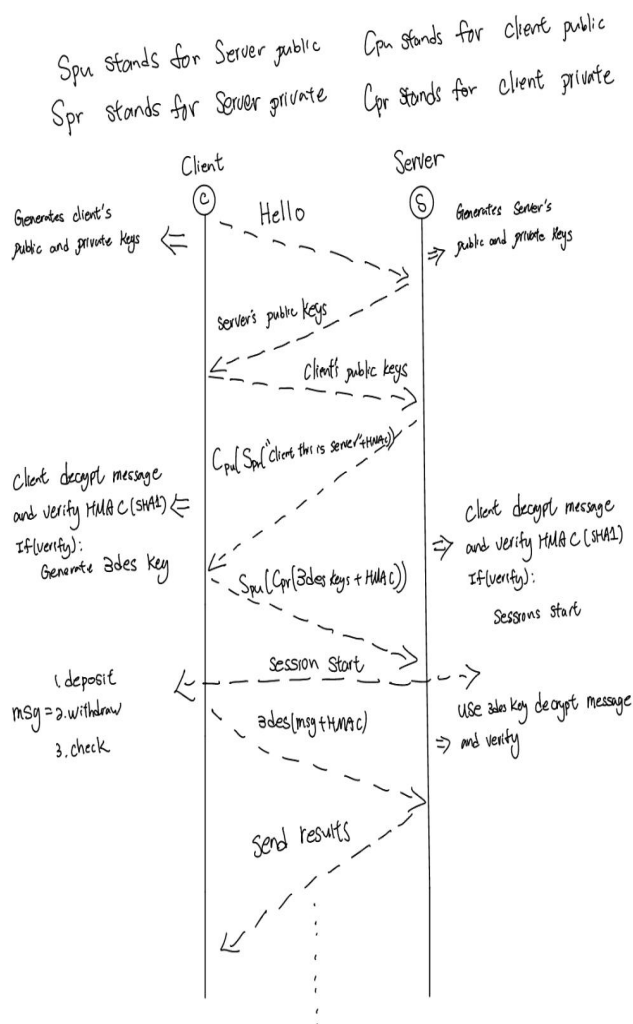 Spu stands for Server public
Cpu stands for client public
Spr stands for Server private
Cpr stands for client private
Client
Server
C
S
Generates client's
public and private keys
Hello
Generates Server's
public and private keys
server's public keys
Client's public keys
Cpu(Spr("client this is server"+HMAC))
Client decrypt message
and verify HMAC(SHA1)
If(verify):
Generate 3des key
Client decrypt message
and verify HMAC(SHA1)
If(verify):
Sessions start
Spu(Cpr(3des keys + HMAC))
Session Start
1. deposit
msg = 2. withdraw
3. check
3des(msg+HMAC)
Use 3des key decrypt message
and verify
Send results